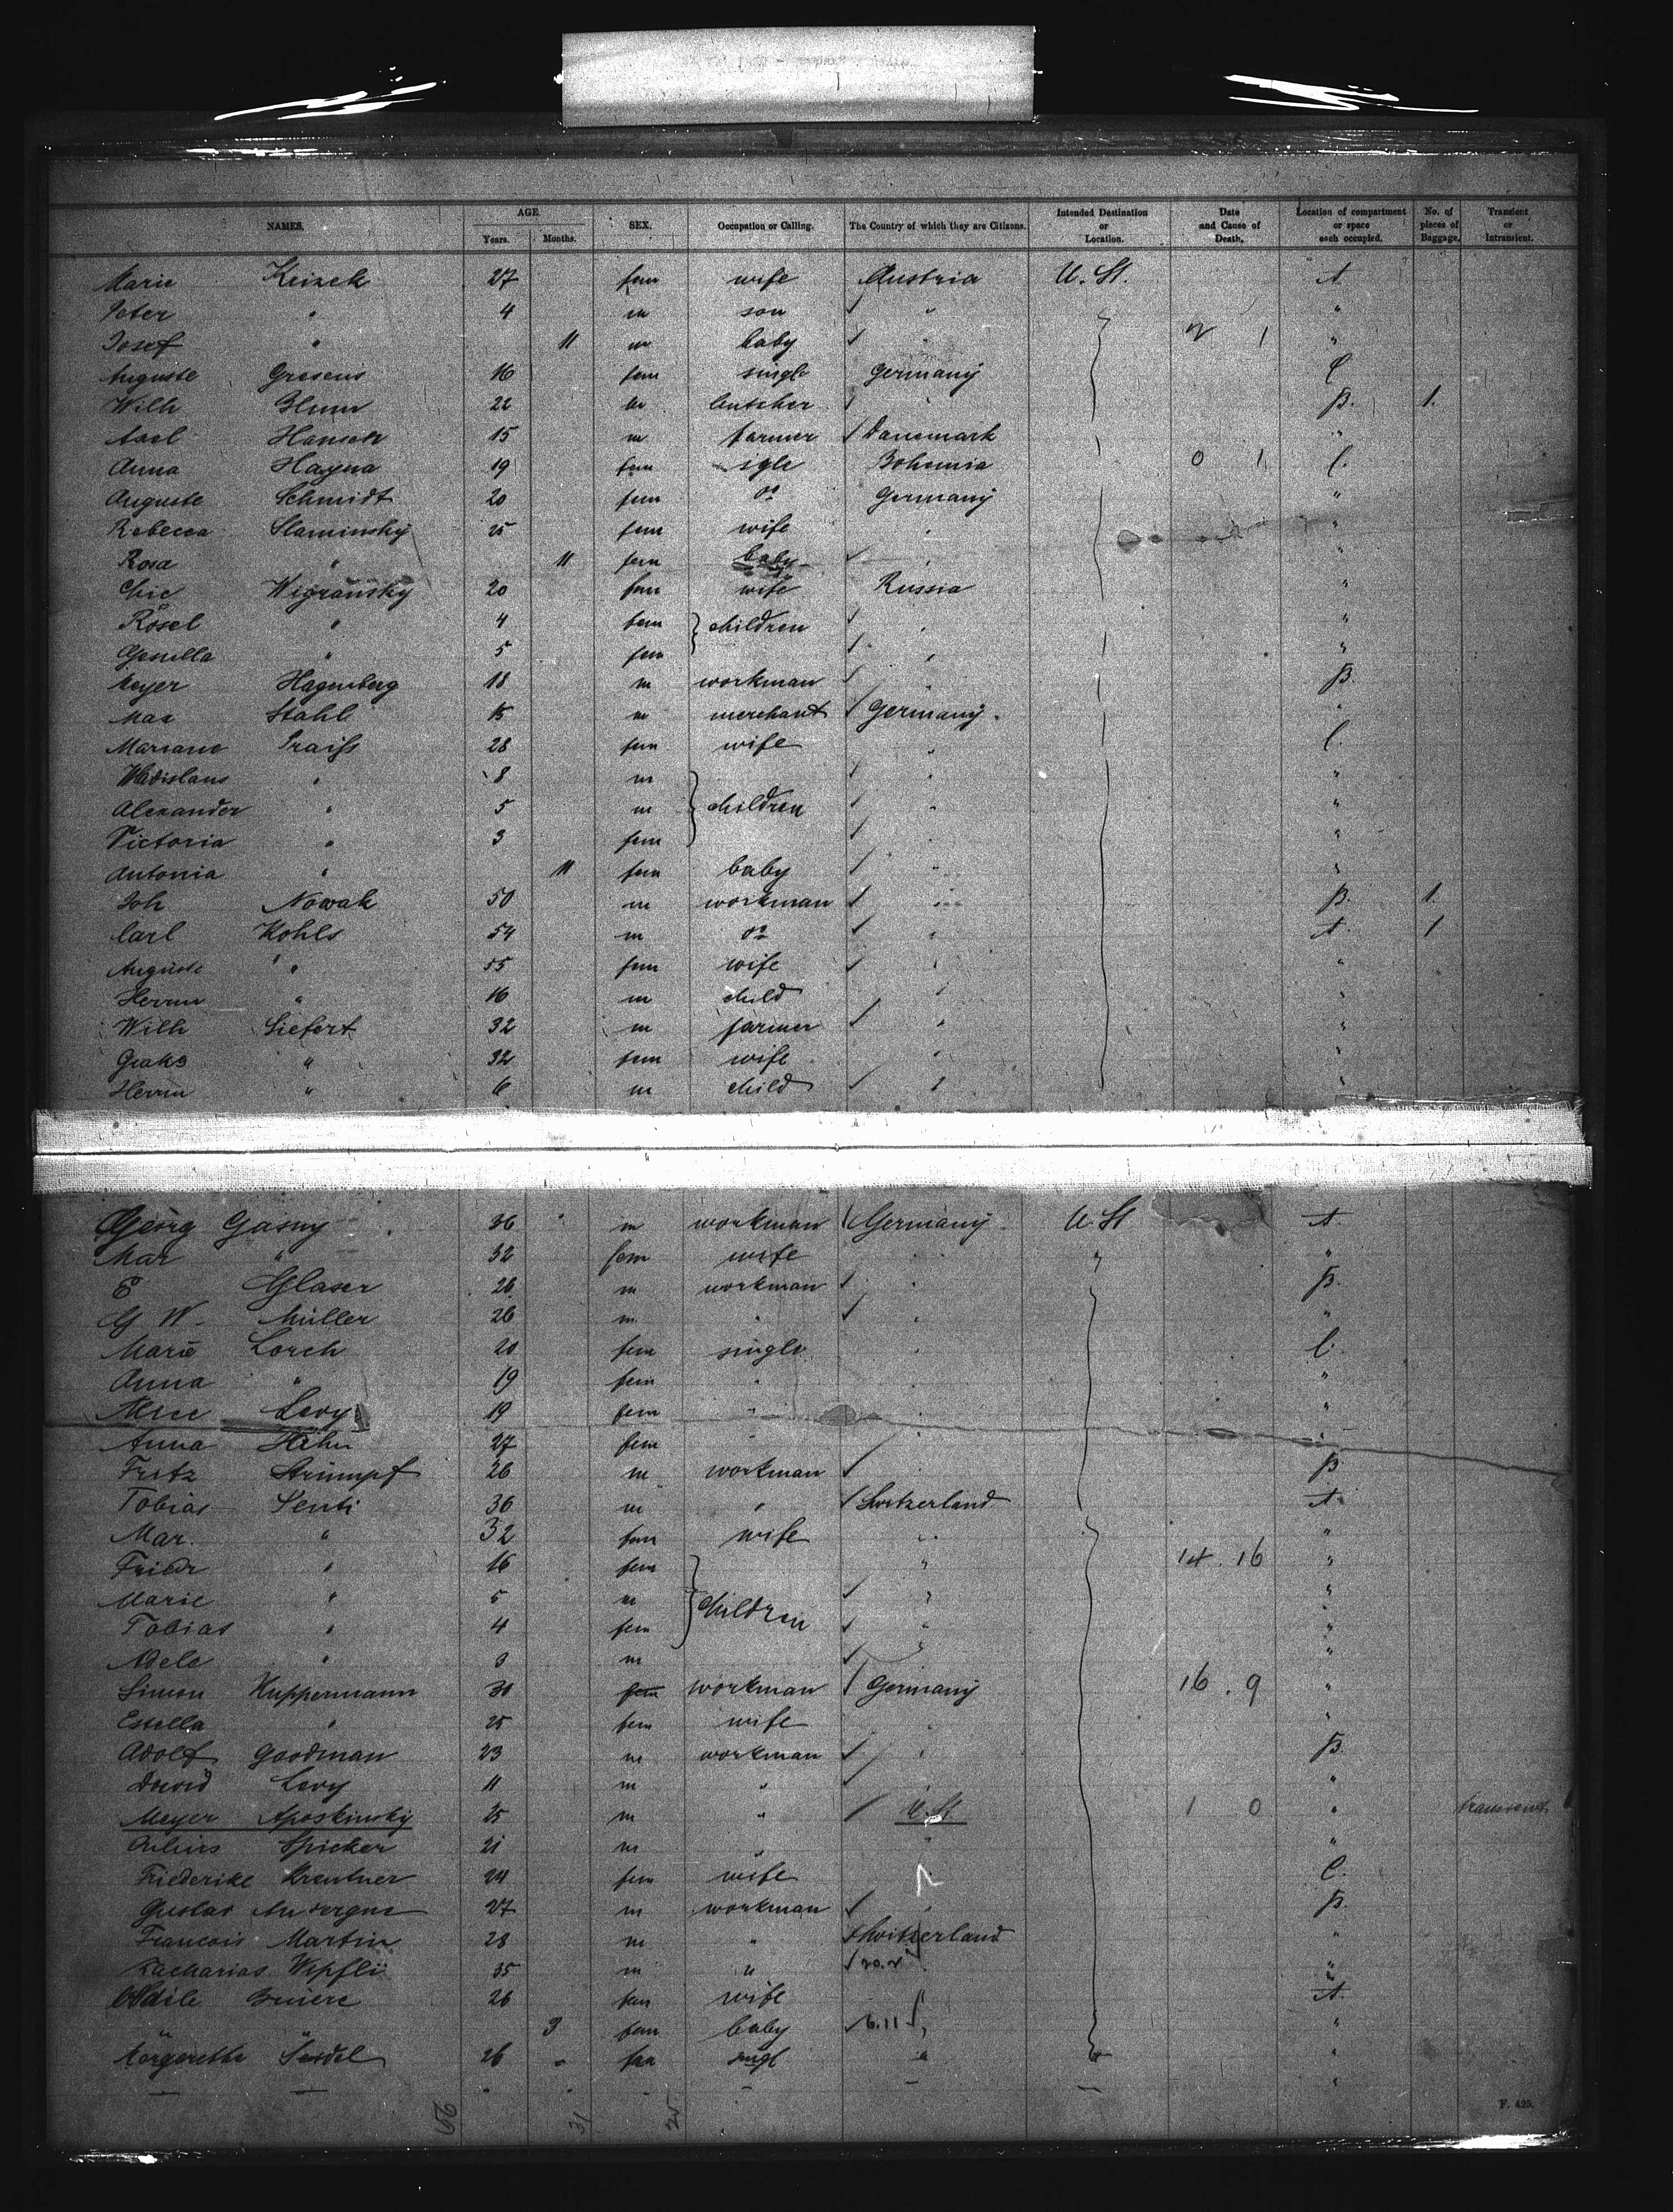 NAMES. AGE. Years. Months. SEX. Occupation or Calling. The Country of which they are Citizens. Intended Destination or Location. Date and Cause of Death. Location of compartment or space each occupied. No. of pieces of Baggage. Transient or Intransient.
Marie 27 fem wife Austria U. St. A
Peter " 4 m son " "
Josef " 11 m baby " 2 1 "
Auguste Gresens 16 fem single Germany C
Wilh Blum 22 m butcher " B. 1.
Axel Hansen 15 m farmer Danemark "
Anna Hayna 19 fem sgle Bohemia 0 1 C.
Auguste Schmidt 20 fem do Germany "
Rebecca Slaminsky 25 fem wife " "
Rosa " 11 fem baby " "
Chie Wigransky 20 fem wife Russia "
Rösel " 4 fem children " "
" 5 fem " "
Meyer Hagenberg 18 m workman " B.
Max Stahl 15 m merchant Germany. "
Mariane Praiss 28 fem wife " C.
Wladislaus " 8 m " "
Alexander " 5 m children " "
Victoria " 3 fem " "
Antonia " 11 fem baby " "
Joh Nowak 50 m workman " B. 1.
Carl Kohls 54 m do " A. 1
Auguste " 55 fem wife " "
Herm " 16 m child " "
Wilh Siefert 32 m farmer " "
" 32 fem wife " "
Herm " 6 m child " "
Georg Gasny 36 m workman Germany U. St A.
Mar " 32 fem wife " " "
E Glaser 26 m workman " B.
G W. Müller 26 m " " "
Marie Lorch 20 fem single " C.
Anna " 19 fem " " "
Levy 19 fem " " "
Anna Hahn 27 fem " " "
Fritz Strumpf 26 m workman " B
Tobias Senti 36 m " Switzerland A
Mar. " 32 fem wife " "
Friedr " 16 fem " 14 . 16 "
Marie " 5 m children " "
Tobias " 4 fem " "
Adele " 3 m " "
Simon Kuppermann 30 fem workman Germany 16 . 9 "
Estella " 25 fem wife " "
Adolf Goodman 23 m workman " B.
David Levy 11 m " " "
Meyer Aposkinsky 25 m " U. St 1 0 " transient
Julius Spicker 21 m " " "
Friederike Kreutner 24 fem wife C.
Gustav 27 m workman " B.
Francois Martin 28 m " Switzerland "
Zacharias Wipfli 35 m " "
Odile 26 fem wife " A.
" " 3 fem baby 6.11 " "
Margarethe Seidel 26 - fem singl " "
— — - - - - — "
56 31 25
F. 425.